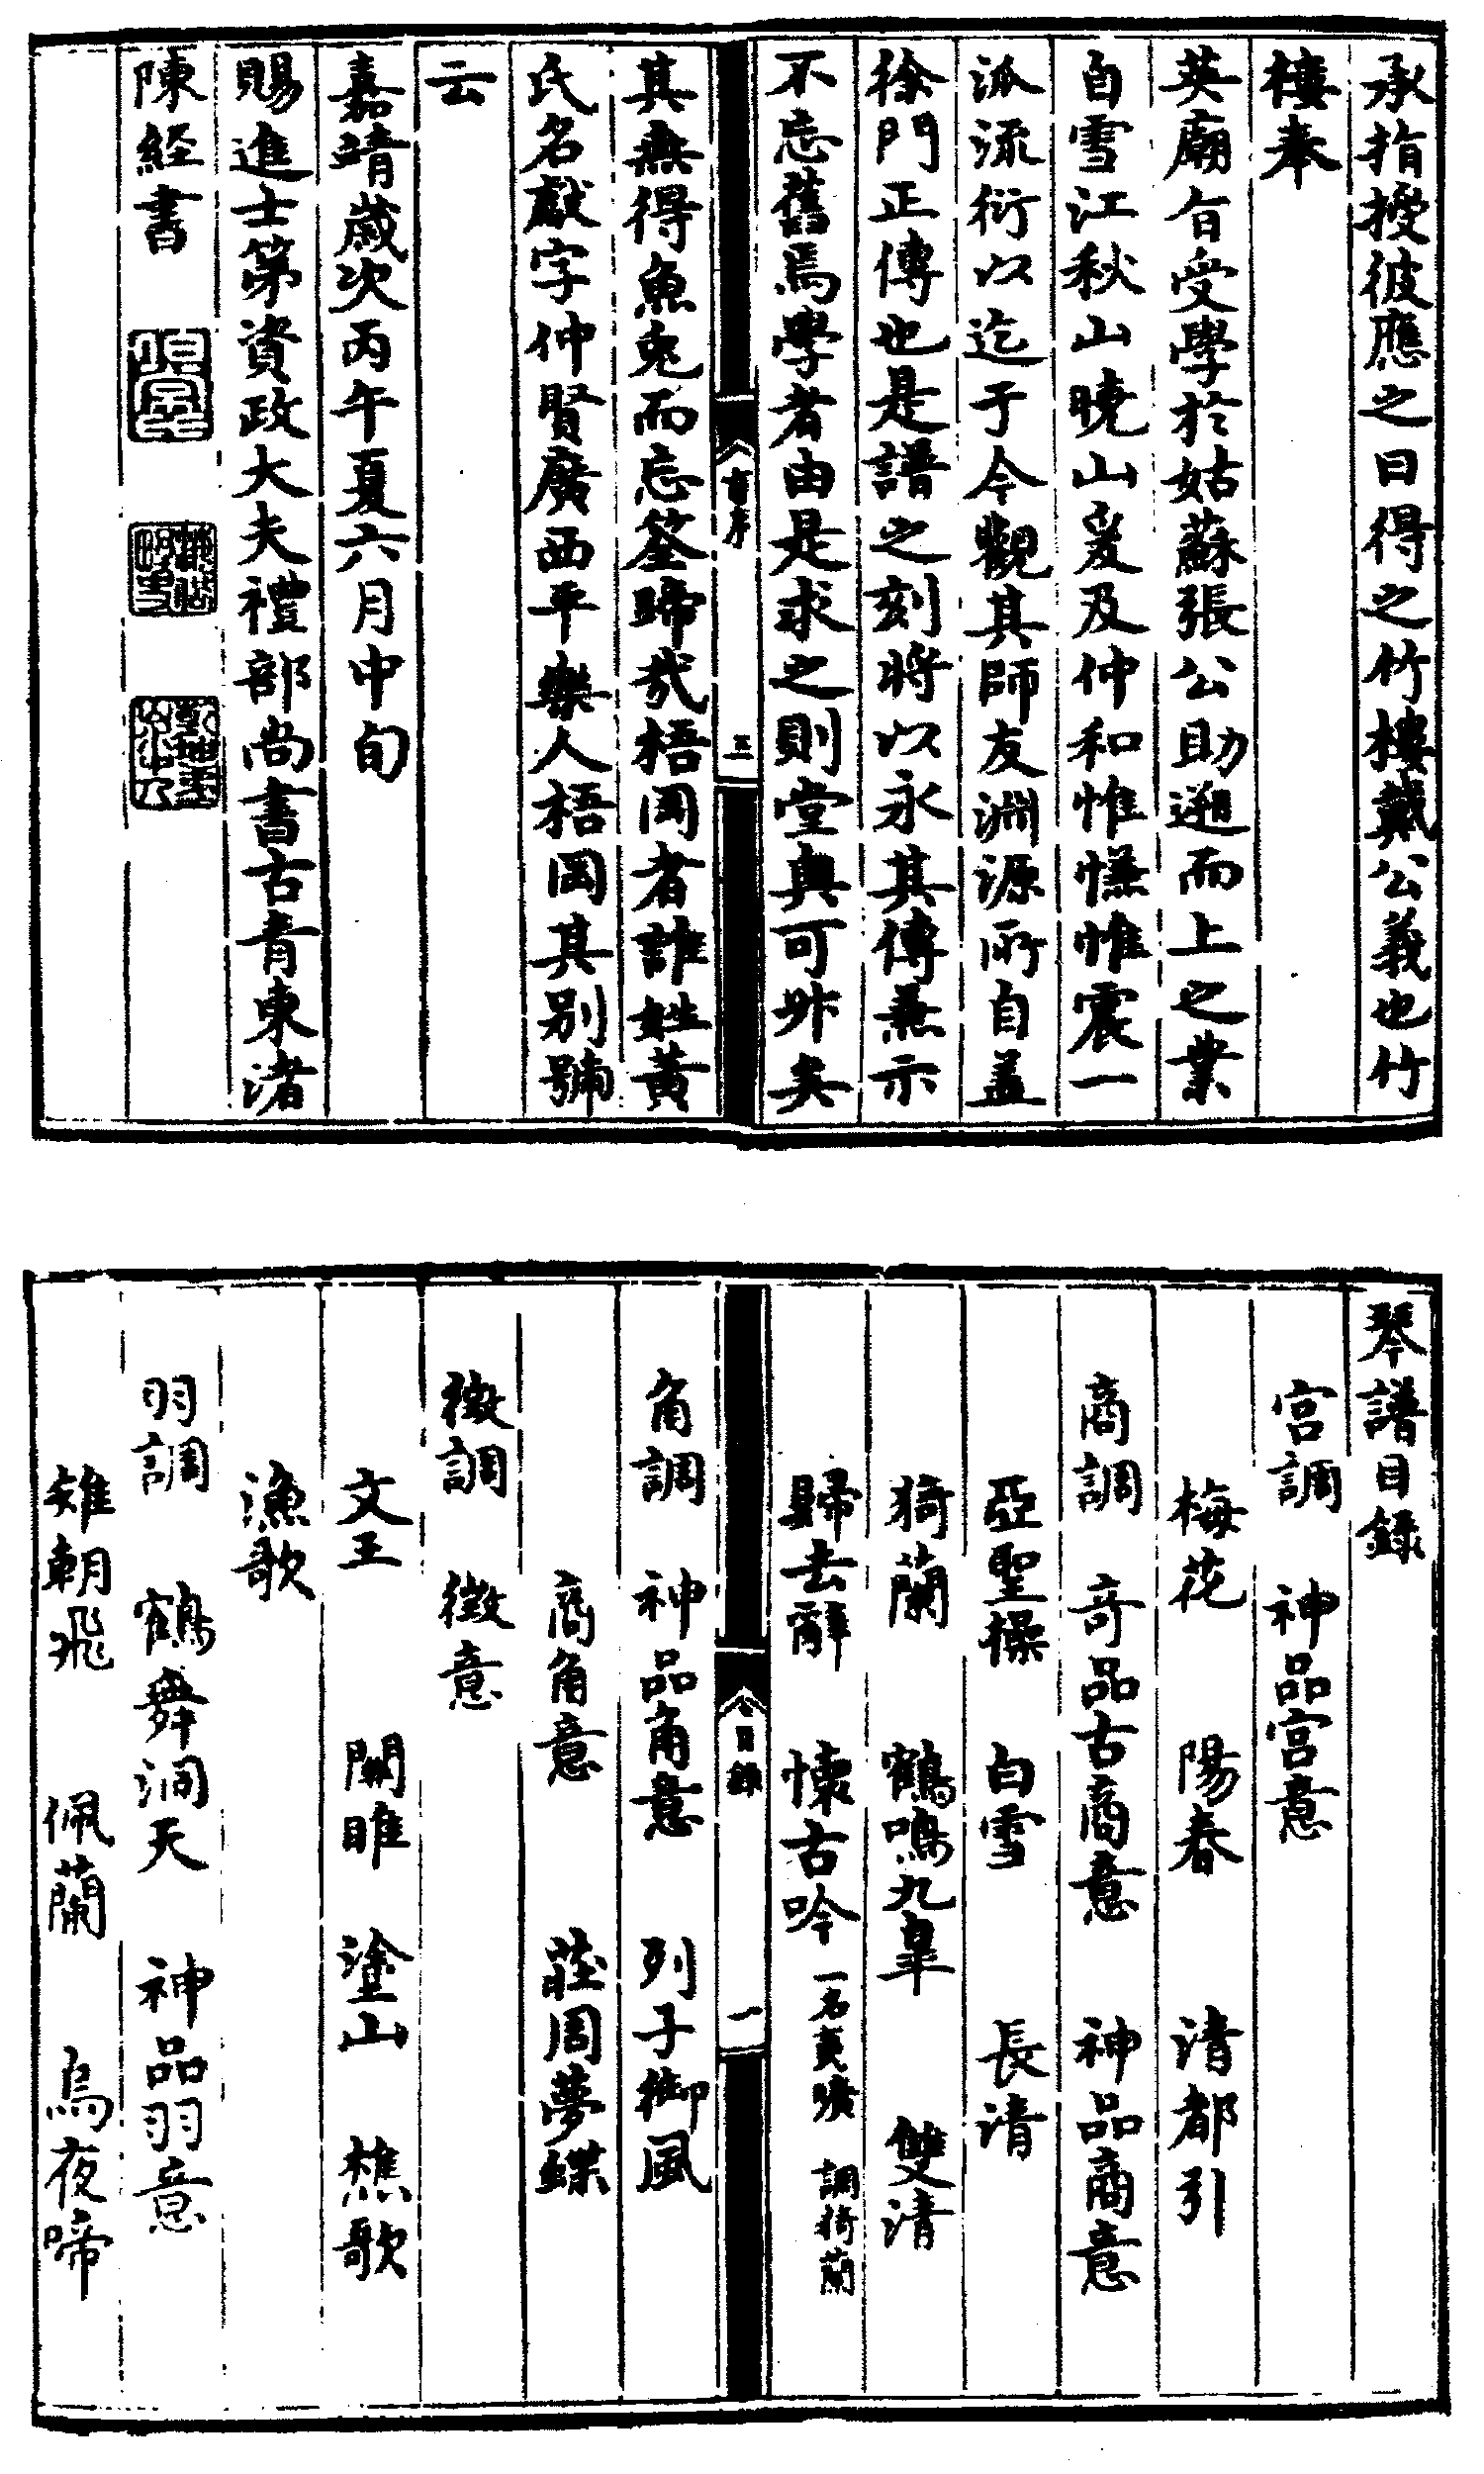 承指授彼應之曰得之竹樓戴公義也竹
樓奉
英廟旨受學於姑蘇張公助遡而上之業
自雪江秋山曉山爰及仲和惟慊惟震一
派流衍以迄于今觀其師友淵源所自盖
徐門正傳也是譜之刻將以永其傳兼示
不忘舊焉學者由是求之則堂奧可升矣
首序
三
其無得魚兎而忘筌蹄哉梧岡者誰姓黃
氏名獻字仲賢廣西平樂人梧岡其別號
云
嘉靖歲次丙午夏六月中旬
賜進士第資政大夫禮部尚書古青東渚
陳經書
琴譜目録
宮調　神品宮意
梅花　陽春　清都引
商調　竒品古商意　神品商意
亞聖操　白雪　長清
猗蘭　鶴鳴九臯　雙清
歸去辭　懷古吟　一名夷曠　調猗蘭
目録
一
角調　神品角意　列子御風
商角意　莊周夢蝶
徵調　徵意
文王　關雎　塗山　樵歌
漁歌
羽調　鶴舞洞天　神品羽意
雉朝飛　佩蘭　烏夜啼